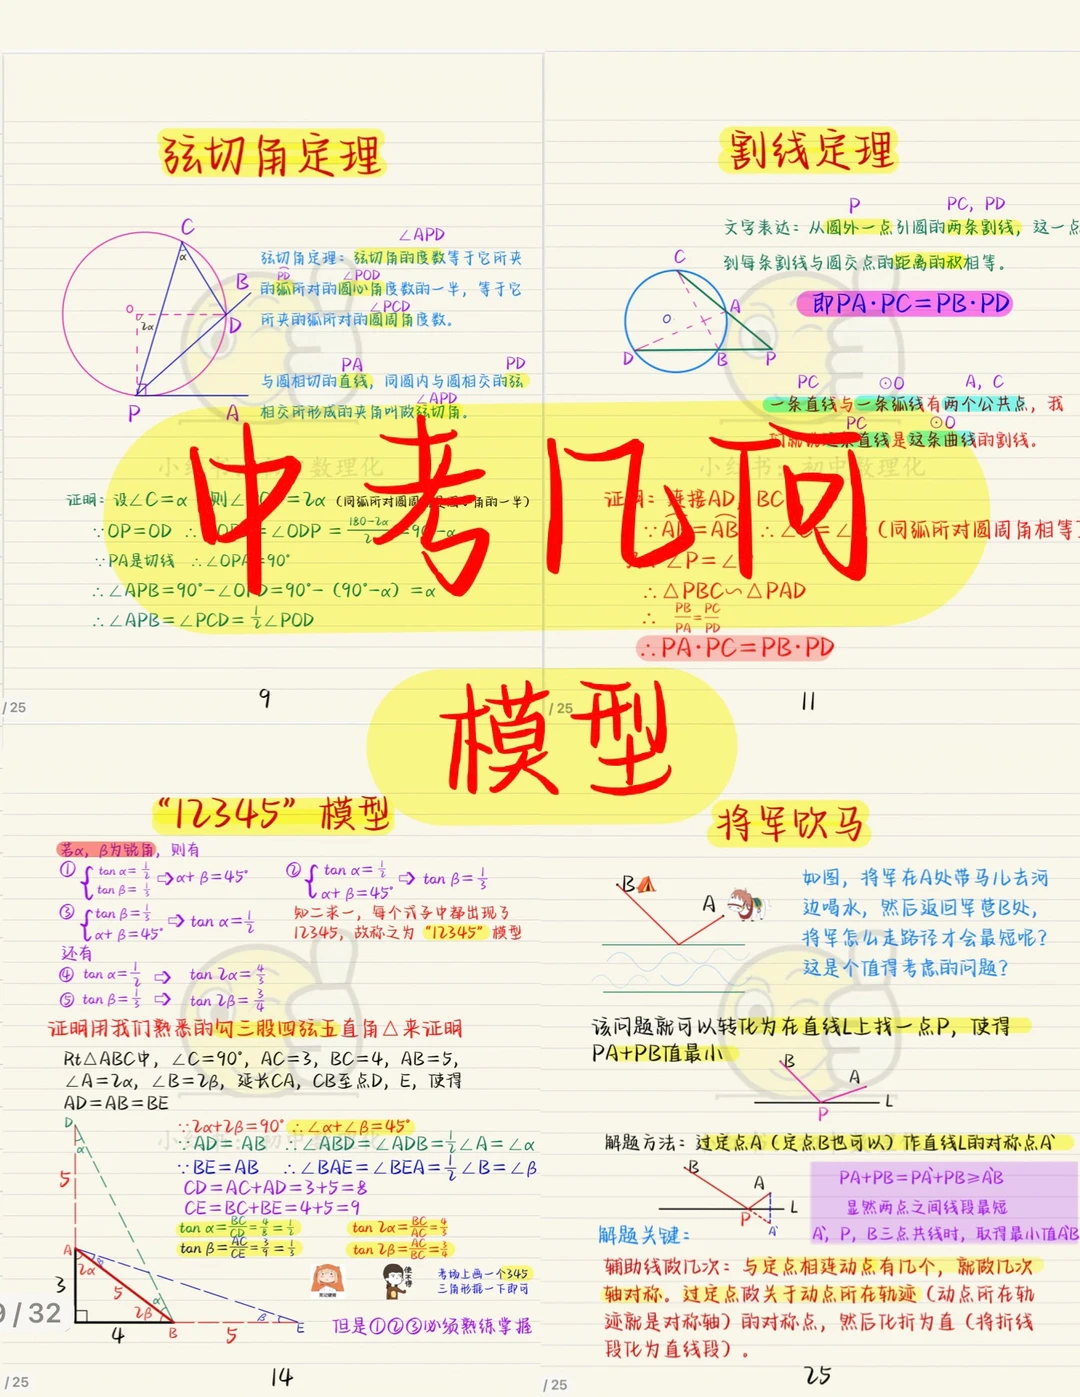 弦切角定理
C
α
B
O
2α
D
P
A
∠APD
弦切角定理：弦切角的度数等于它所夹
PD ∠POD
的弧所对的圆心角度数的一半，等于它
∠PCD
所夹的弧所对的圆周角度数。
PA PD
与圆相切的直线，同圆内与圆相交的弦
∠APD
相交所形成的夹角叫做弦切角。
证明：设∠C=α 则∠ =2α（同弧所对圆周 角的一半）
∵OP=OD ∴ =∠ODP=
∵PA是切线 ∴∠OPA=90°
∴∠APB=90°-∠OPD=90°-(90°-α)=α
∴∠APB=∠PCD=1/2∠POD
9
/25
割线定理
P PC，PD
文字表达：从圆外一点引圆的两条割线，这一点
到每条割线与圆交点的距离的积相等。
即PA·PC=PB·PD
C
A
O
D
B
P
PC ⊙O A，C
一条直线与一条弧线有两个公共点，我
PC ⊙O
们就说这条直线是这条曲线的割线。
证明：连接AD，BC
∵AB=AB ∴∠ =∠ （同弧所对圆周角相等）
∠P=∠
∴△PBC∽△PAD
∴ PB/PA=PC/PD
∴PA·PC=PB·PD
11
/25
中考几何
模型
小红书：初中数理化
“12345”模型
若α，β为锐角，则有
① { tan α=1/2 tan β=1/3 ⇨ α+β=45°
② { tan α=1/2 α+β=45° ⇨ tan β=1/3
③ { tan β=1/3 α+β=45° ⇨ tan α=1/2
知二求一，每个式子中都出现了
12345，故称之为“12345”模型
还有
④ tan α=1/2 ⇨ tan 2α=4/3
⑤ tan β=1/3 ⇨ tan 2β=3/4
证明用我们熟悉的勾三股四弦五直角△来证明
Rt△ABC中，∠C=90°，AC=3，BC=4，AB=5，
∠A=2α，∠B=2β，延长CA，CB至点D，E，使得
AD=AB=BE
∵2α+2β=90° ∴∠α+∠β=45°
∵AD=AB ∴∠ABD=∠ADB=1/2∠A=∠α
∵BE=AB ∴∠BAE=∠BEA=1/2∠B=∠β
CD=AC+AD=3+5=8
CE=BC+BE=4+5=9
tan α=BC/CD=4/8=1/2 tan 2α=BC/AC=4/3
tan β=AC/CE=3/9=1/3 tan 2β=AC/BC=3/4
考场上画一个345
三角形推一下即可
但是①②③必须熟练掌握
D
α
5
A
2α
β
3
5
α
2β
β
4
B
5
E
9/32
14
/25
将军饮马
B
A
如图，将军在A处带马儿去河
边喝水，然后返回军营B处，
将军怎么走路径才会最短呢？
这是个值得考虑的问题？
该问题就可以转化为在直线L上找一点P，使得
PA+PB值最小
B
A
L
P
解题方法：过定点A（定点B也可以）作直线L的对称点A'
B
A
L
P
A'
PA+PB=PA'+PB≥A'B
显然两点之间线段最短
A'，P，B三点共线时，取得最小值A'B
解题关键：
辅助线做几次：与定点相连动点有几个，就做几次
轴对称。过定点做关于动点所在轨迹（动点所在轨
迹就是对称轴）的对称点，然后化折为直（将折线
段化为直线段）。
25
/25